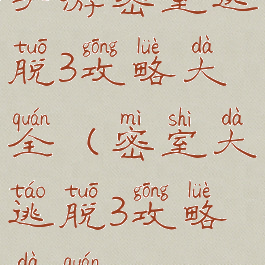 手游密室逃
tuō gōng lüè dà
脱3攻略大
quán mì shì dà
全(密室大
táo tuō gōng lüè
逃脱3攻略
dà quán